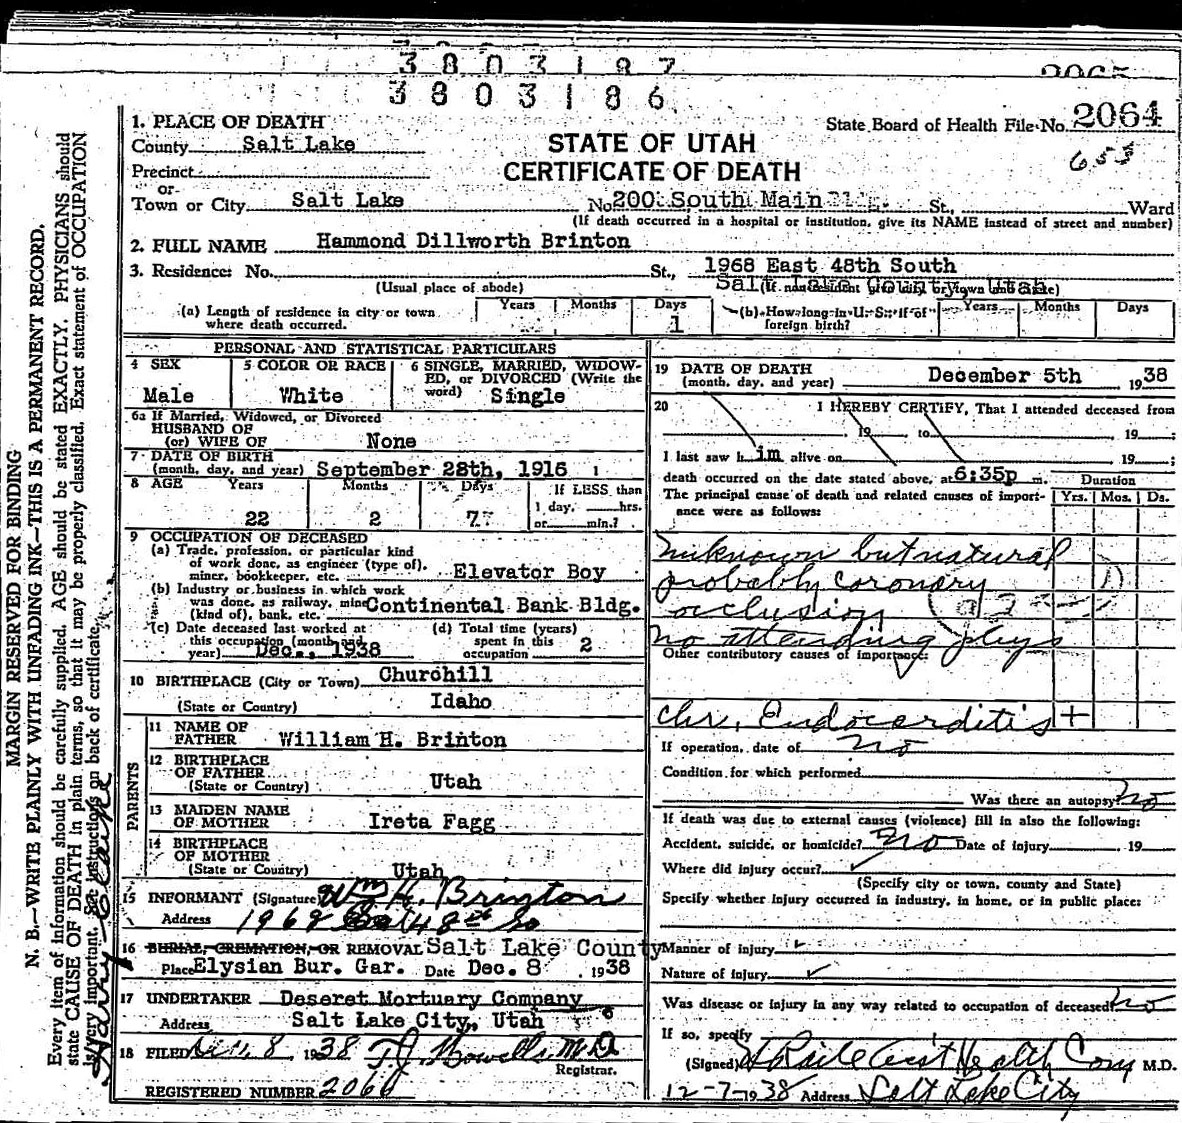 3803187
3803186
2065
1. PLACE OF DEATH
State Board of Health File No. 2064
County Salt Lake
STATE OF UTAH
653
Precinct
CERTIFICATE OF DEATH
or
Town or City Salt Lake No. 200 South Main St., Ward
(If death occurred in a hospital or institution, give its NAME instead of street and number)
2. FULL NAME Hammond Dillworth Brinton
3. Residence: No. St., 1968 East 48th South
(Usual place of abode) Salt Lake County, Utah
(a) Length of residence in city or town where death occurred. Years Months Days 1
(b) How long in U. S. if of foreign birth? Years Months Days
PERSONAL AND STATISTICAL PARTICULARS
4 SEX Male
5 COLOR OR RACE White
6 SINGLE, MARRIED, WIDOWED, or DIVORCED (Write the word) Single
6a If Married, Widowed, or Divorced
HUSBAND OF
(or) WIFE OF None
7 DATE OF BIRTH
(month, day, and year) September 28th, 1916
8 AGE Years Months Days If LESS than
22 2 7 1 day, hrs.
or min.?
9 OCCUPATION OF DECEASED
(a) Trade, profession, or particular kind
of work done, as engineer (type of),
miner, bookkeeper, etc. Elevator Boy
(b) Industry or business in which work
was done, as railway, mine
(kind of), bank, etc. Continental Bank Bldg.
(c) Date deceased last worked at
this occupation (month and
year) Dec., 1938
(d) Total time (years)
spent in this
occupation 2
10 BIRTHPLACE (City or Town) Churchill
(State or Country) Idaho
PARENTS
11 NAME OF
FATHER William H. Brinton
12 BIRTHPLACE
OF FATHER
(State or Country) Utah
13 MAIDEN NAME
OF MOTHER Ireta Fagg
14 BIRTHPLACE
OF MOTHER
(State or Country) Utah
15 INFORMANT (Signature) Wm H. Brinton
Address 1968 East 48th So
16 BURIAL, CREMATION, OR REMOVAL Salt Lake County
Place Elysian Bur. Gar. Date Dec. 8, 1938
17 UNDERTAKER Deseret Mortuary Company
Address Salt Lake City, Utah
18 FILED Dec. 8, 1938 T.J. Howells M.D.
Registrar.
REGISTERED NUMBER 2066
19 DATE OF DEATH
(month, day, and year) December 5th 1938
20 I HEREBY CERTIFY, That I attended deceased from
, 19 , to , 19 ;
I last saw him alive on , 19 ;
death occurred on the date stated above, at 6:35p m.
Duration
The principal cause of death and related causes of importance were as follows:
Yrs. Mos. Ds.
unknown but natural
probably coronary
occlusion
no attending phys
Other contributory causes of importance:
Chr. Endocarditis +
If operation, date of no
Condition for which performed
Was there an autopsy? no
If death was due to external causes (violence) fill in also the following:
Accident, suicide, or homicide? no Date of injury 19
Where did injury occur?
(Specify city or town, county and State)
Specify whether injury occurred in industry, in home, or in public place:
Manner of injury
Nature of injury
Was disease or injury in any way related to occupation of deceased? no
If so, specify
(Signed) Health Com M.D.
12-7-1938 Address Salt Lake City
MARGIN RESERVED FOR BINDING
N. B.—WRITE PLAINLY WITH UNFADING INK—THIS IS A PERMANENT RECORD.
Every item of information should be carefully supplied. AGE should be stated EXACTLY. PHYSICIANS should
state CAUSE OF DEATH in plain terms, so that it may be properly classified. Exact statement of OCCUPATION
is very important. See instructions on back of certificate.